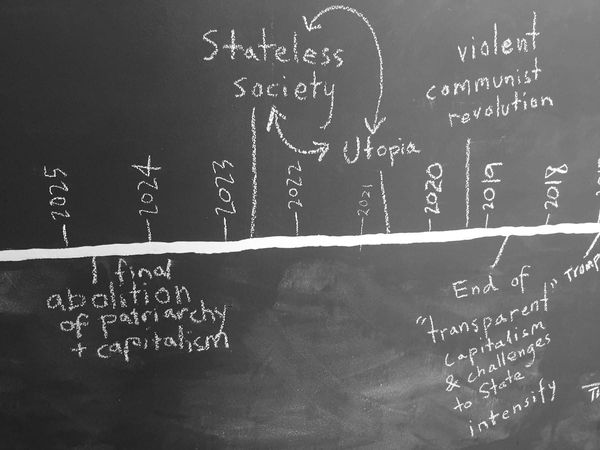 Stateless
society
Utopia
violent
communist
revolution
2025
2024
2023
2022
2021
2020
2019
2018
final
abolition
of patriarchy
+ capitalism
End of
"transparent"
capitalism
& challenges
to State
intensify
Trump